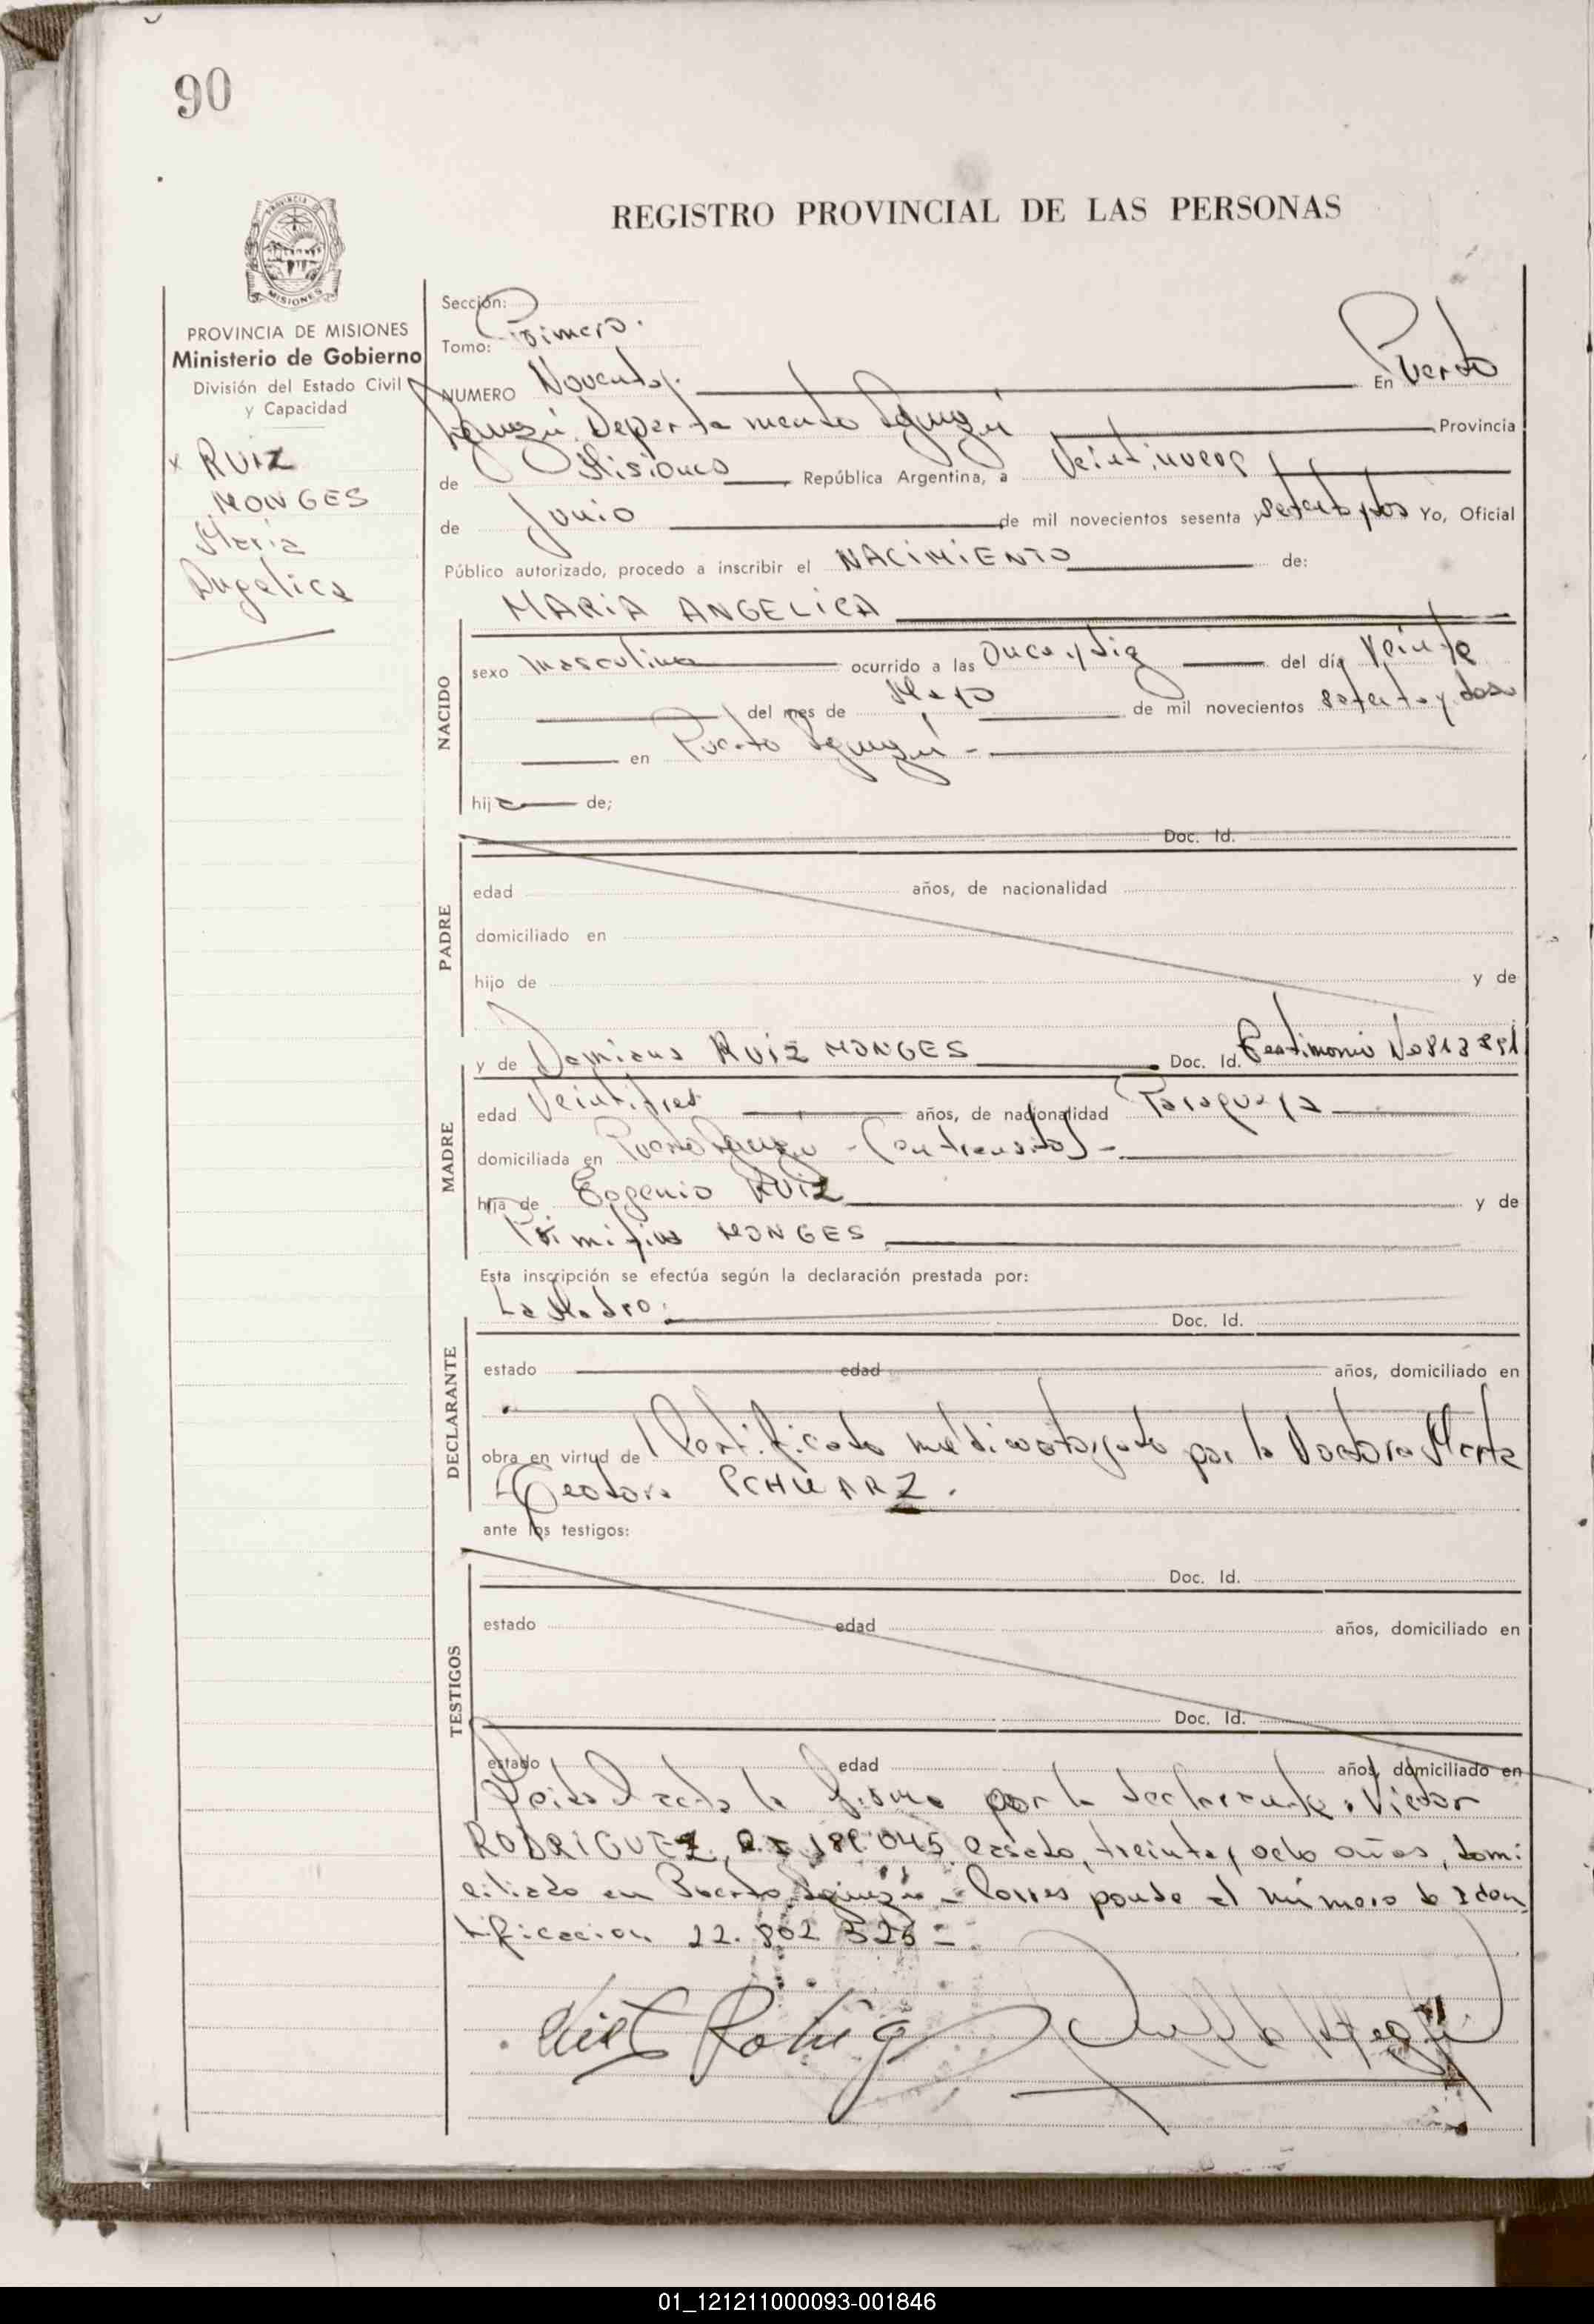 90
REGISTRO PROVINCIAL DE LAS PERSONAS
MISIONES
PROVINCIA DE MISIONES
Ministerio de Gobierno
División del Estado Civil
y Capacidad
x RUIZ
MONGES
María
Angelica
Sección:
Tomo: Primero.
NUMERO Noventa. En Puerto
Iguazú Departamento Iguazú Provincia
de Misiones República Argentina, a Veintinueve
de Junio de mil novecientos sesenta y setenta y dos Yo, Oficial
Público autorizado, procedo a inscribir el NACIMIENTO de:
MARIA ANGELICA
NACIDO
sexo masculino ocurrido a las Once y diez del día Veinte
del mes de Mayo de mil novecientos setenta y dos
en Puerto Iguazú -
hij de;
PADRE
Doc. Id.
edad años, de nacionalidad
domiciliado en
hijo de y de
MADRE
y de Damiana RUIZ MONGES Doc. Id. Testimonio No 813 891
edad Veintitres años, de nacionalidad Paraguaya
domiciliada en Puerto Iguazú - (en transito) -
hija de Eogenio RUIZ y de
Primitiva MONGES
Esta inscripción se efectúa según la declaración prestada por:
DECLARANTE
La Madre. Doc. Id.
estado edad años, domiciliado en
obra en virtud de Certificado medico otorgado por la Doctora Marta
Teodora SCHWARZ.
ante los testigos:
TESTIGOS
Doc. Id.
estado edad años, domiciliado en
Doc. Id.
estado edad años, domiciliado en
Leida el acta la firma por la declarante, Victor
RODRIGUEZ, casado, treinta y ocho años, domi
ciliado en Puerto Iguazú - Corresponde el número de Iden
tificacion 22.802 326 =.
01_121211000093-001846